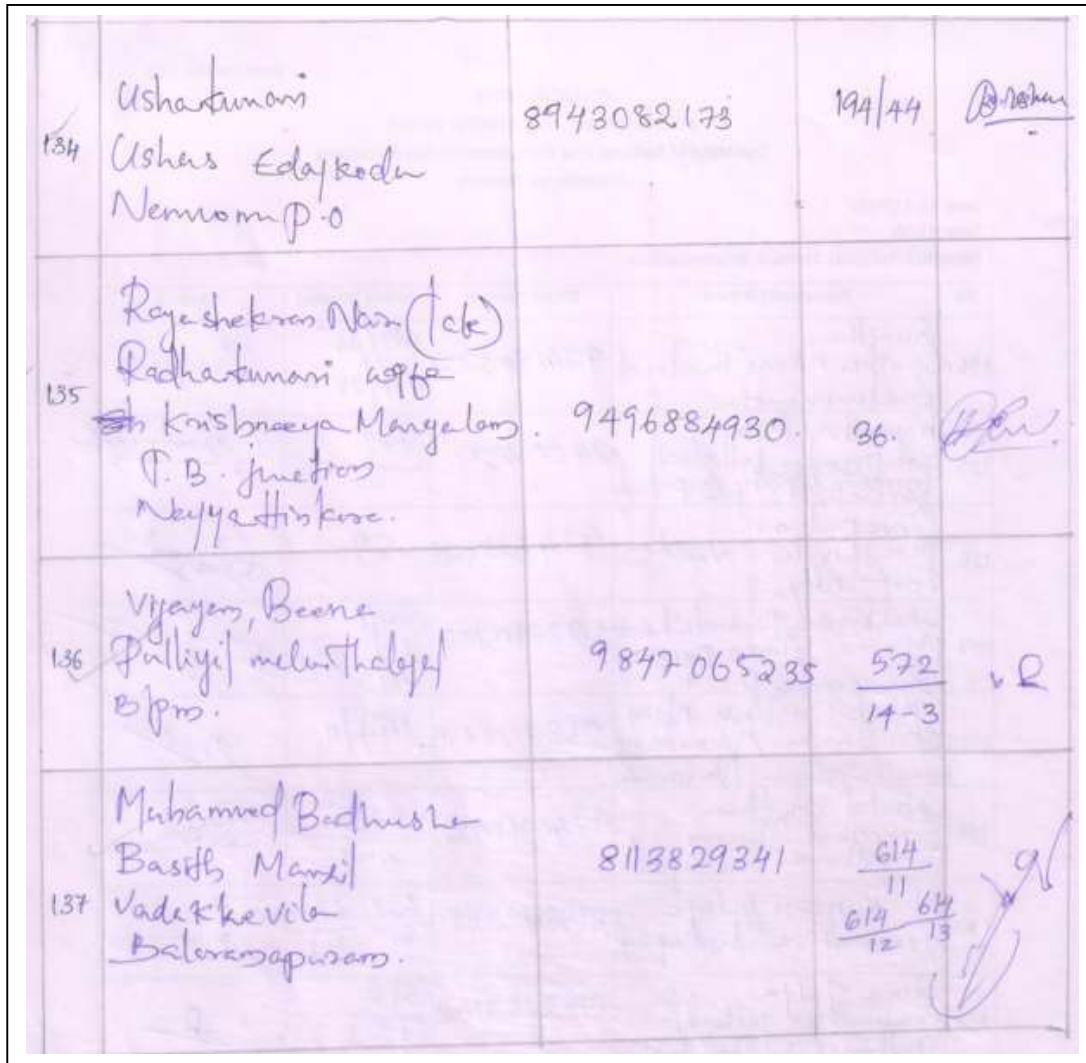 134
Ushakumari
Ushas Edaikodu
Nemom P.O
8943082173
194/44
135
Rajashekaran Nair (late)
Radhakumari wife
Krishneeya Mangalam.
T.B. junction
Neyyattinkara.
9496884930.
36.
136
Vijayan, Beena
Pulliyil
B'pm.
9847065235
572
14-3
137
Muhammed Badhusha
Basith Manzil
Vadakkevila
Balaramapuram.
8113829341
614
11
614 614
12 13